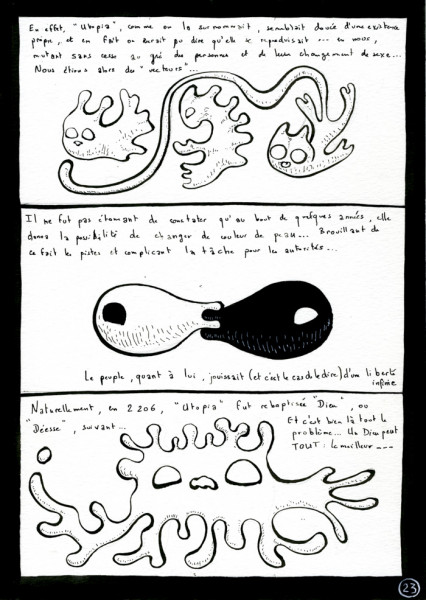 En effet, "Utopia", comme on la surnommait, semblait douée d'une existence
propre, et en fait on aurait pu dire qu'elle se reproduisait ... en nous,
mutant sans cesse au gré des personnes et de leur changement de sexe...
Nous étions alors des "vecteurs"...
Il ne fut pas étonnant de constater qu'au bout de quelques années, elle
donna la possibilité de changer de couleur de peau... Brouillant de
ce fait les pistes et compliquant la tâche pour les autorités...
Le peuple, quant à lui, jouissait (et c'est le cas de le dire) d'une liberté
infinie
Naturellement, en 2206, "Utopia" fut rebaptisée "Dieu", ou
"Déesse", suivant...
Et c'est bien là tout le
problème... Un Dieu peut
TOUT: le meilleur ---
23